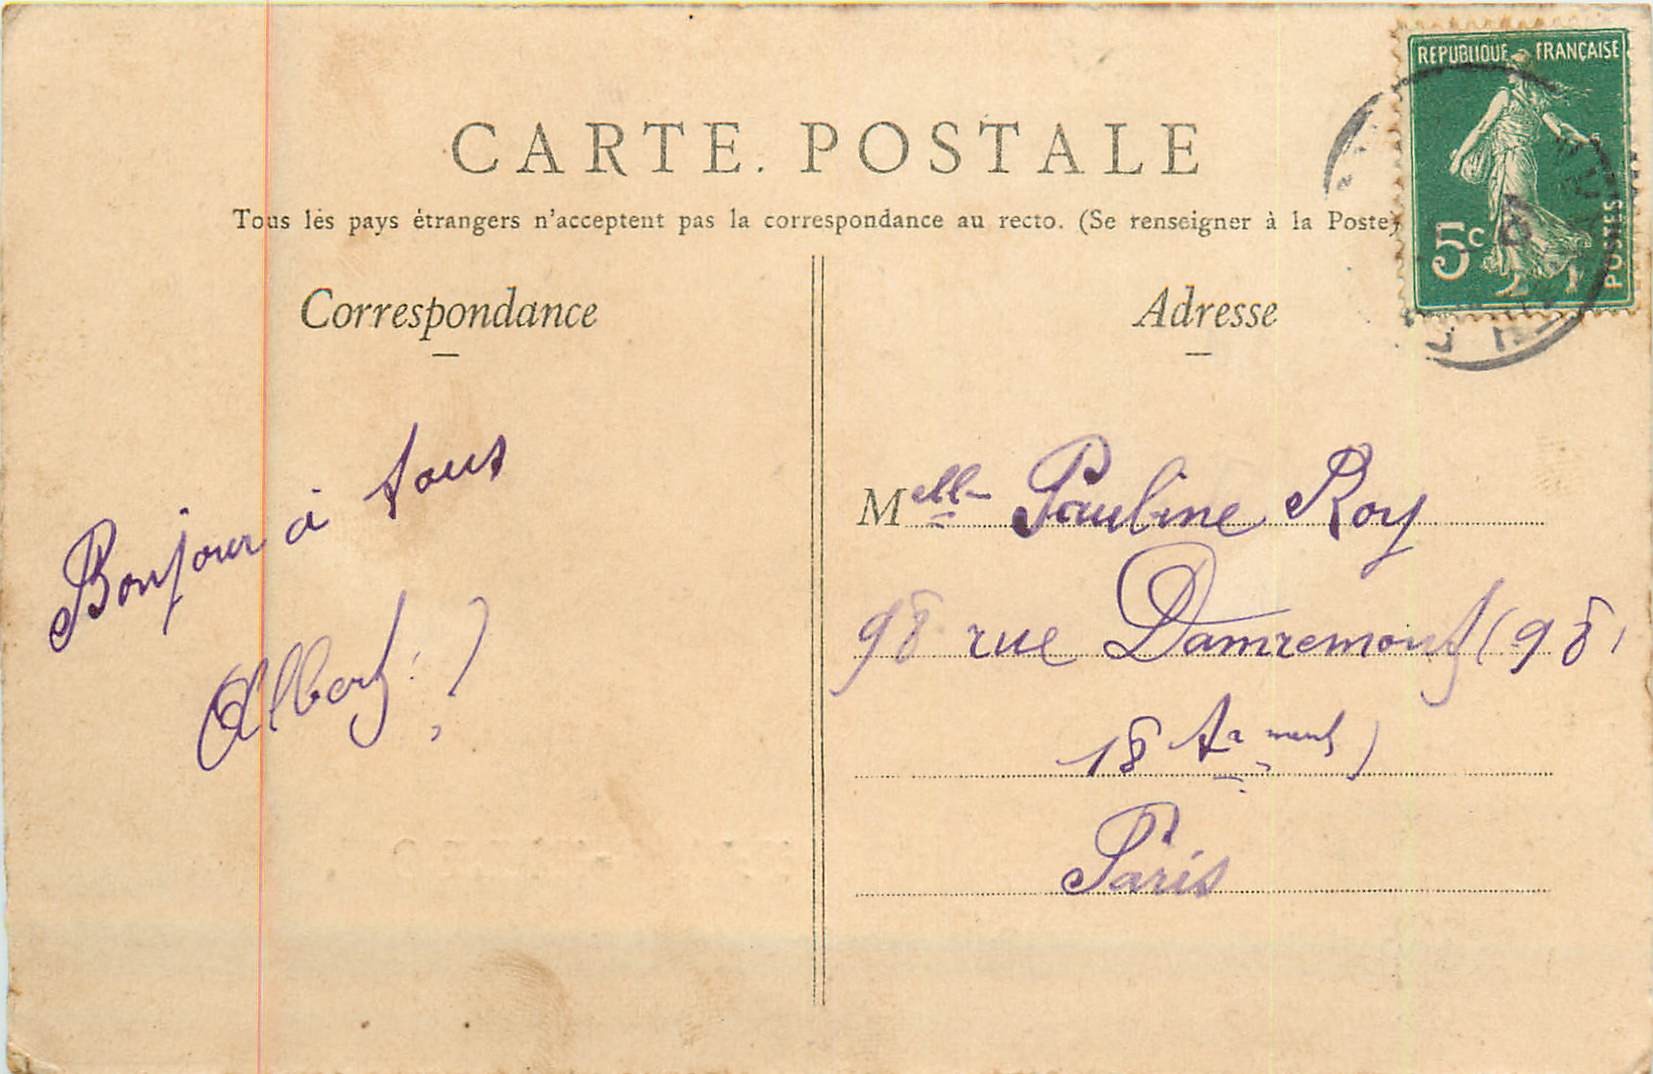 CARTE POSTALE
Tous les pays étrangers n'acceptent pas la correspondance au recto. (Se renseigner à la Poste)
REPUBLIQUE FRANÇAISE
5c
POSTES
Correspondance
Bonjour à tous
Albert
Adresse
Melle Pauline Roy
98 rue Damremont (98)
18 Arment
Paris